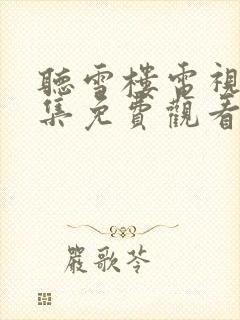 聽雪樓電視
集免費觀看
嚴歌苓